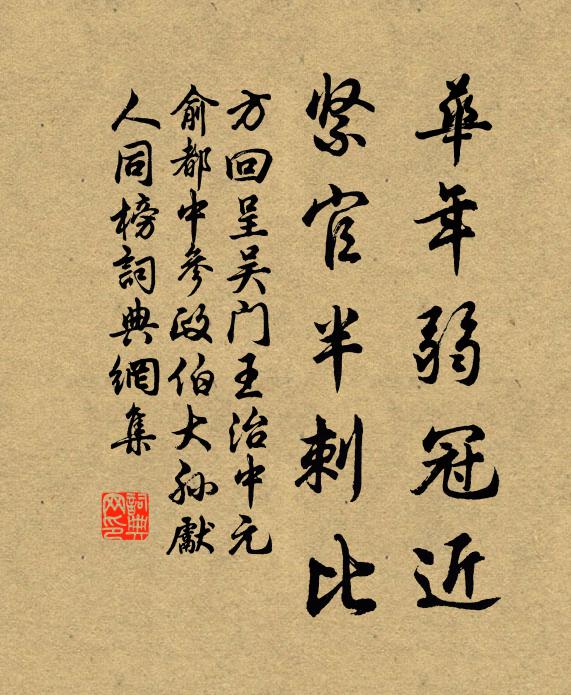 華年弱冠近
緊官半刺比
方回呈吴门王治中元
俞都中參政伯大孙獻
人同榜詞典網集
詞典网印